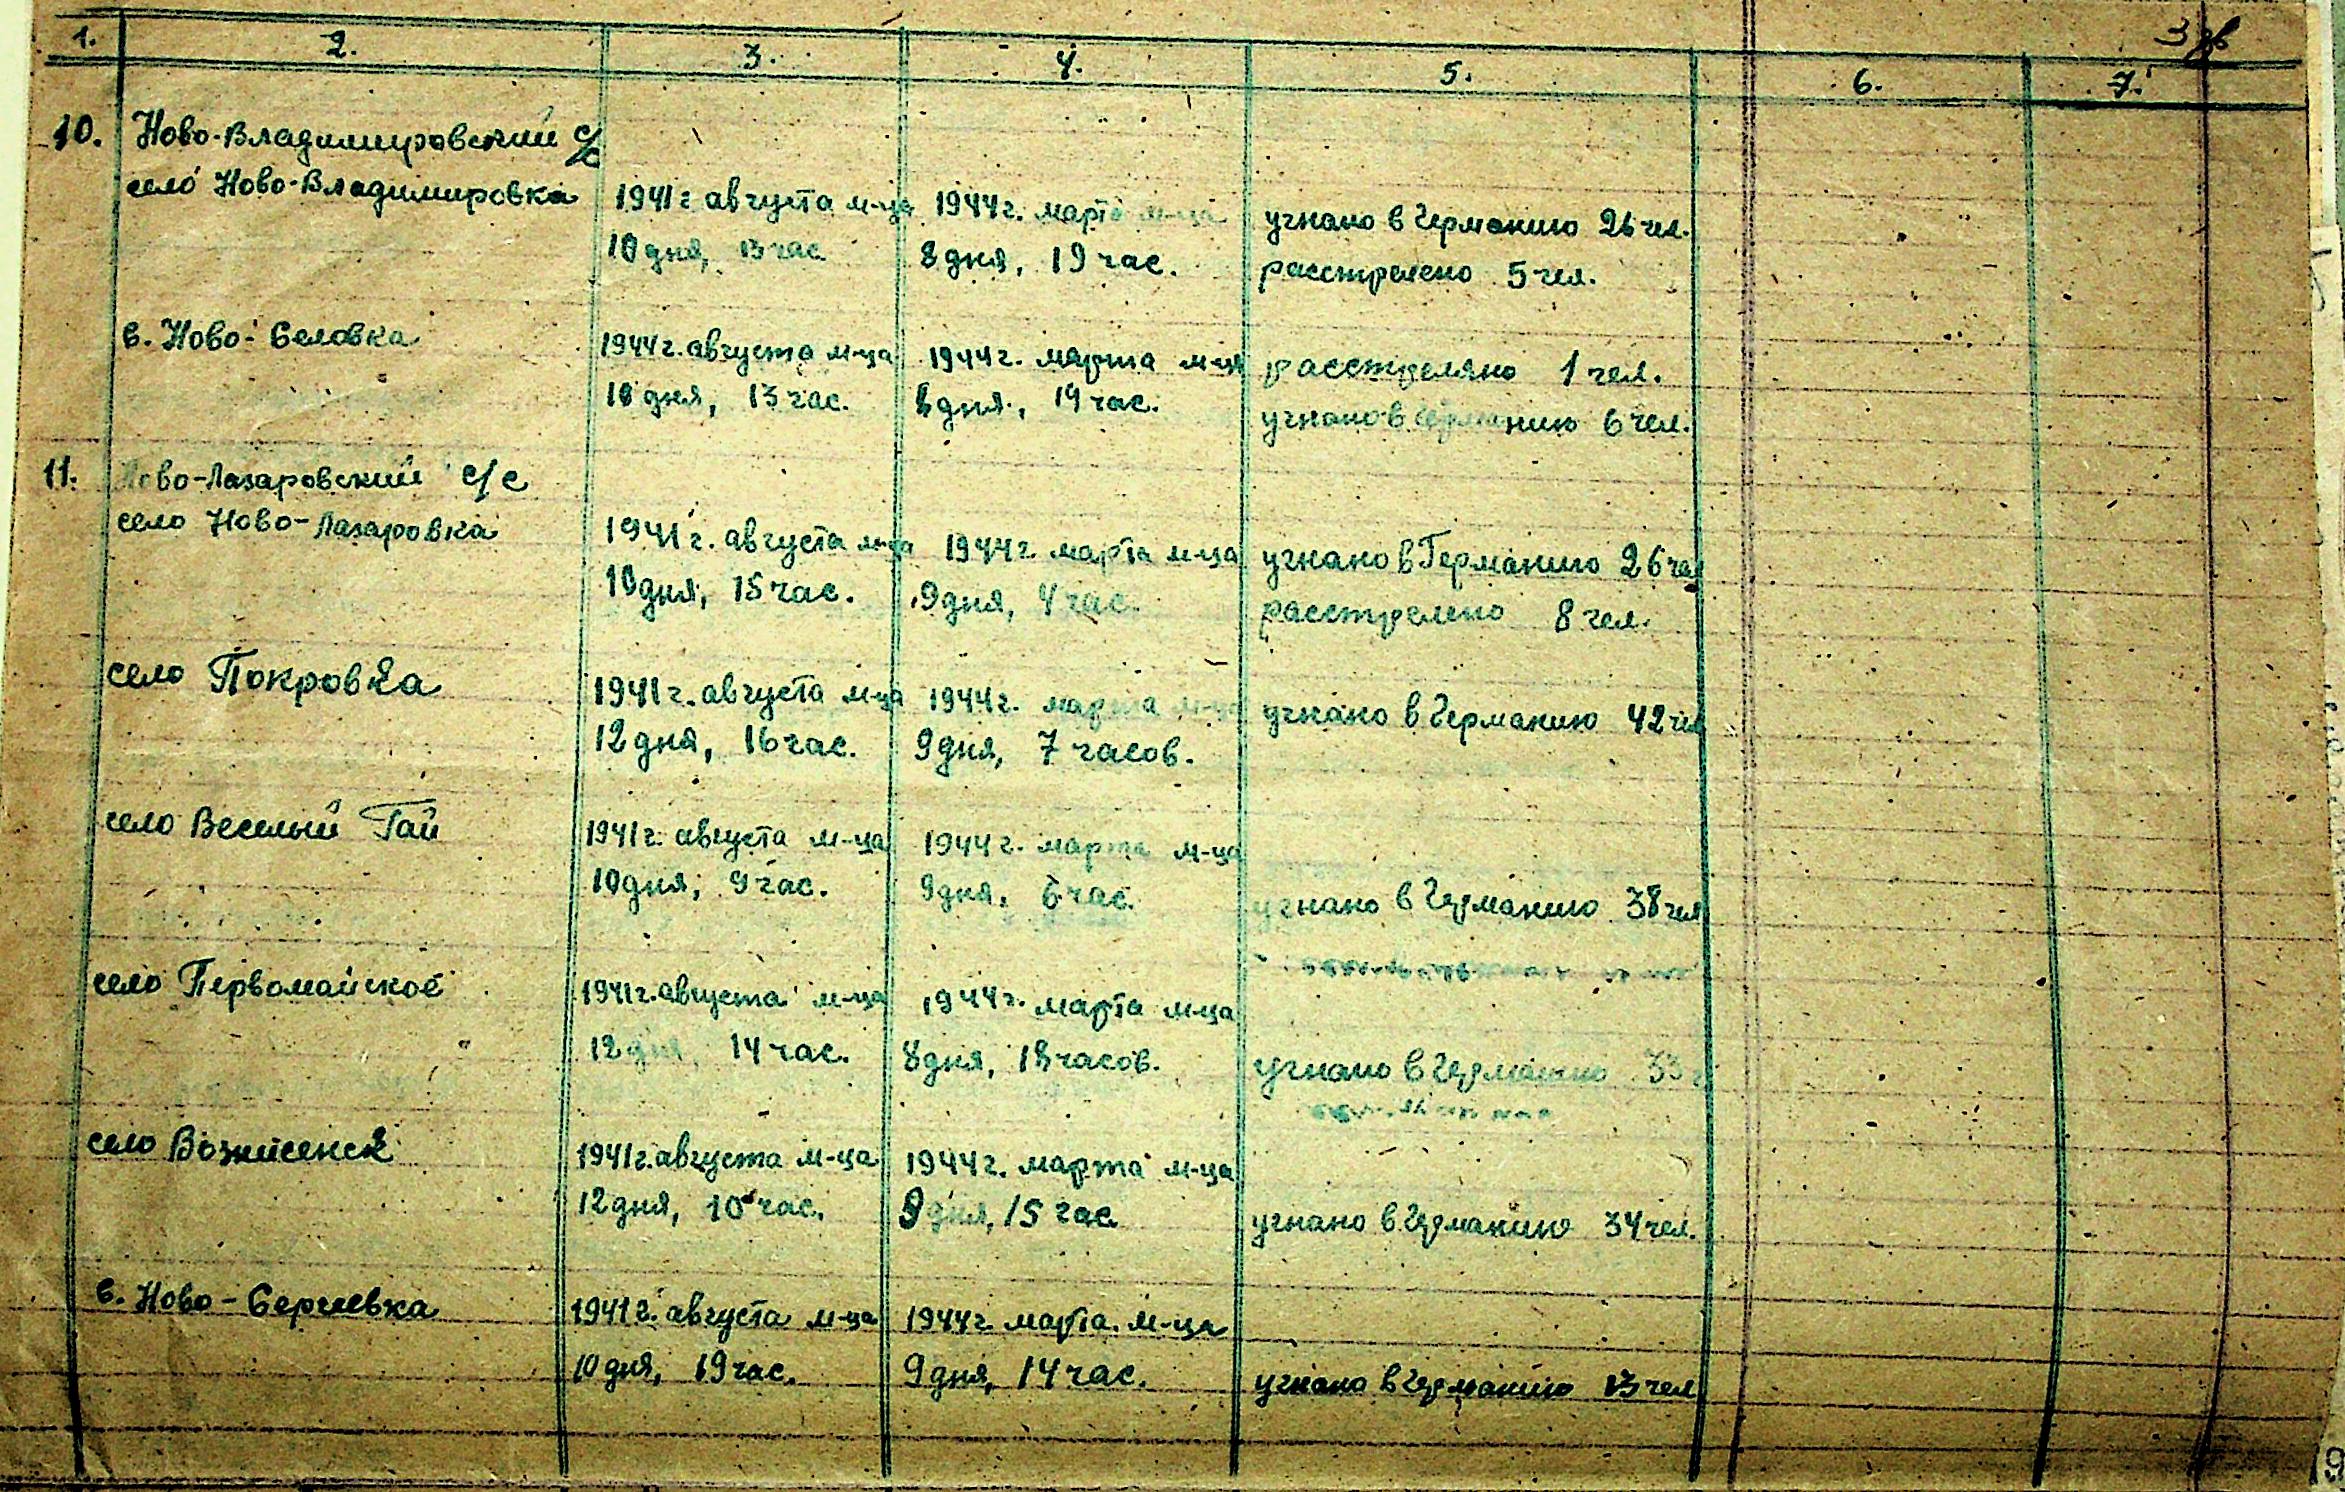 1. 2. 3. 4. 5. 6. 7.
10. Ново-Владимировский с/с
село Ново-Владимировка 1941 г августа м-ца 1944 г. марта м-ца угнано в Германию 26 чел.
10 дня, 13 час. 8 дня, 19 час. расстрелено 5 чел.
с. Ново-Селовка 1944 г. августа м-ца 1944 г. марта м-ца расстреляно 1 чел.
10 дня, 13 час. 8 дня, 19 час. угнано в Германию 6 чел.
11. Ново-Лазаровский с/с
село Ново-Лазаровка 1941 г. августа м-ца 1944 г марта м-ца угнано в Германию 26 чел
10 дня, 15 час. 9 дня, 4 час. расстрелено 8 чел.
село Покровка 1941 г. августа м-ца 1944 г. марта м-ца угнано в Германию 42 чел
12 дня, 16 час. 9 дня, 7 часов.
село Веселый Гай 1941 г. августа м-ца 1944 г. марта м-ца
10 дня, 9 час. 9 дня, 6 час. угнано в Германию 38 чел
село Первомайское 1941 г. августа м-ца 1944 г. марта м-ца
12 дня, 14 час. 8 дня, 18 часов. угнано в Германию 33
село Вознисенск 1941 г. августа м-ца 1944 г. марта м-ца
12 дня, 10 час. 9 дня, 15 час угнано в Германию 34 чел.
с. Ново-Сергеевка 1941 г. августа м-ца 1944 г. марта м-ца
10 дня, 19 час. 9 дня, 14 час. угнано в Германию 13 чел